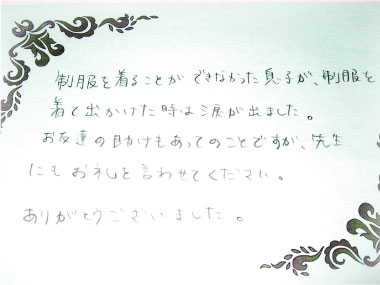 制服を着ることができなかった息子が、制服を
着て出かけた時は涙が出ました。
お友達の助けもあってのことですが、先生
にもお礼を言わせてください。
ありがとうございました。